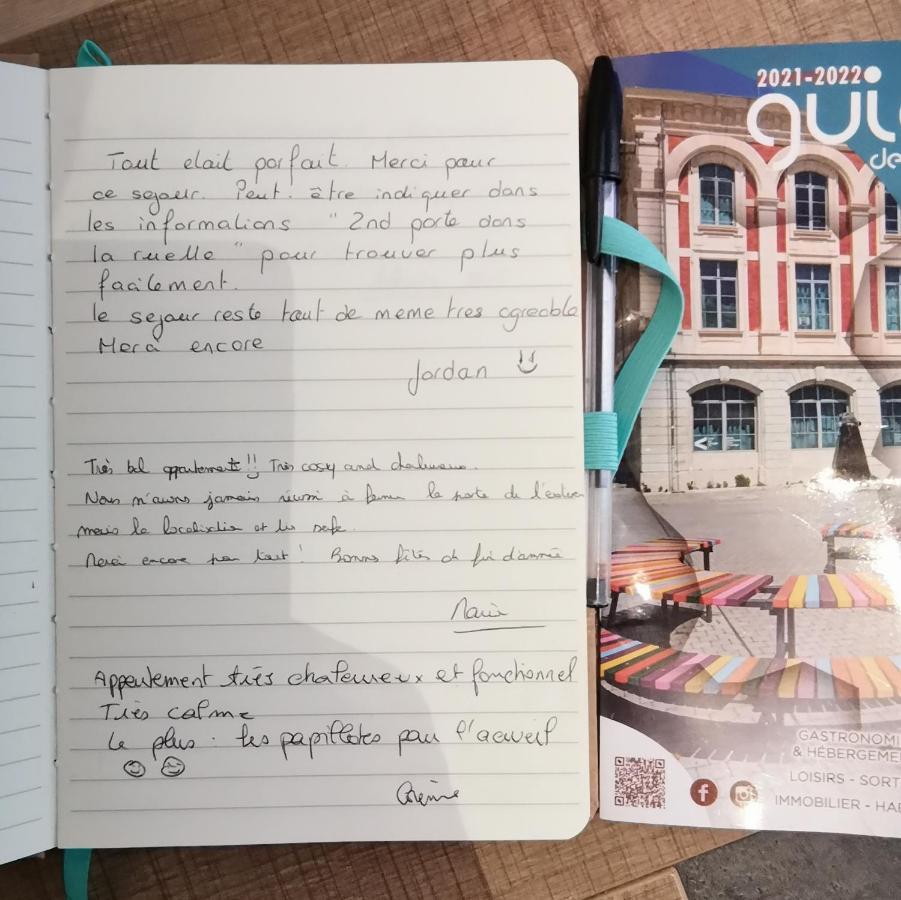 Tout etait parfait. Merci pour
ce sejour. Peut-être indiquer dans
les informations "2nd porte dans
la ruelle" pour trouver plus
facilement.
le sejour reste tout de meme tres agreable
Merci encore
Jordan
Très bel appartement !! Très cosy and chaleureux.
Nous n'avons jamais réussi à fermer la porte de l'
mais la localisation et
Merci encore pour tout ! Bonnes fêtes de fin d'année
Marie
Appartement très chaleureux et fonctionnel
Très calme
Le plus : les papillotes pour l'accueil
2021-2022
gui
de
GASTRONOMI
& HÉBERGEME
LOISIRS - SORT
IMMOBILIER - HA